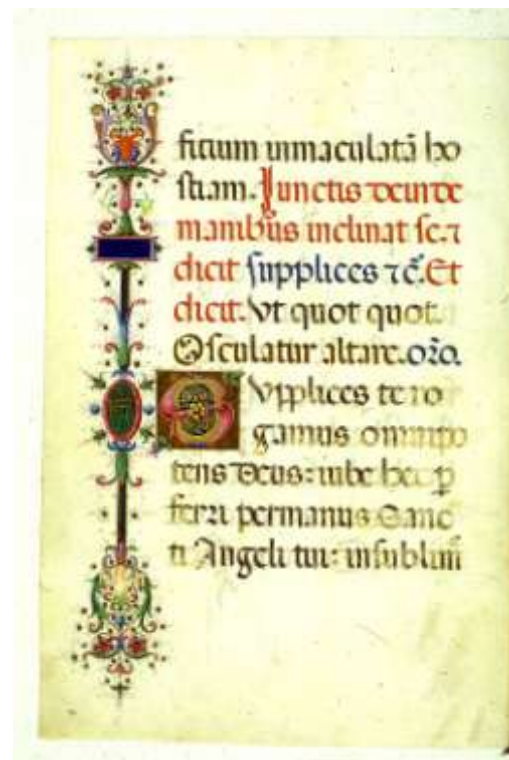 ficium inmaculatā ho
stiam. Junctis deinde
manibus inclinat se. ⁊
dicit supplices ⁊c̄. Et
dicit. Ut quot quot.
Osculatur altare. or̃o.
Supplices te ro
gamus omnipo
tens deus: iube hec ꝑ
ferri permanus Sanc
ti Angeli tui: insublim̄